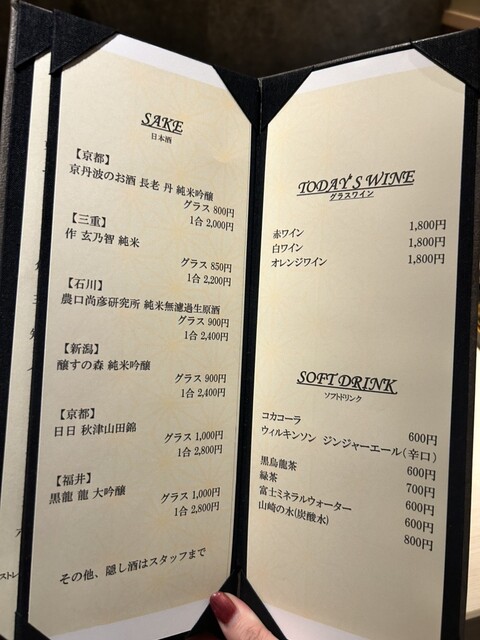 SAKE
日本酒
【京都】
京丹波のお酒 長老 丹 純米吟醸
グラス 800円
1合 2,000円
【三重】
作 玄乃智 純米
グラス 850円
1合 2,200円
【石川】
農口尚彦研究所 純米無濾過生原酒
グラス 900円
1合 2,400円
【新潟】
醸すの森 純米吟醸
グラス 900円
1合 2,400円
【京都】
日日 秋津山田錦
グラス 1,000円
1合 2,800円
【福井】
黒龍 龍 大吟醸
グラス 1,000円
1合 2,800円
その他、隠し酒はスタッフまで
TODAY'S WINE
グラスワイン
赤ワイン 1,800円
白ワイン 1,800円
オレンジワイン 1,800円
SOFT DRINK
ソフトドリンク
コカコーラ 600円
ウィルキンソン ジンジャーエール(辛口) 600円
黒烏龍茶 700円
緑茶 600円
富士ミネラルウォーター 600円
山崎の水(炭酸水) 800円